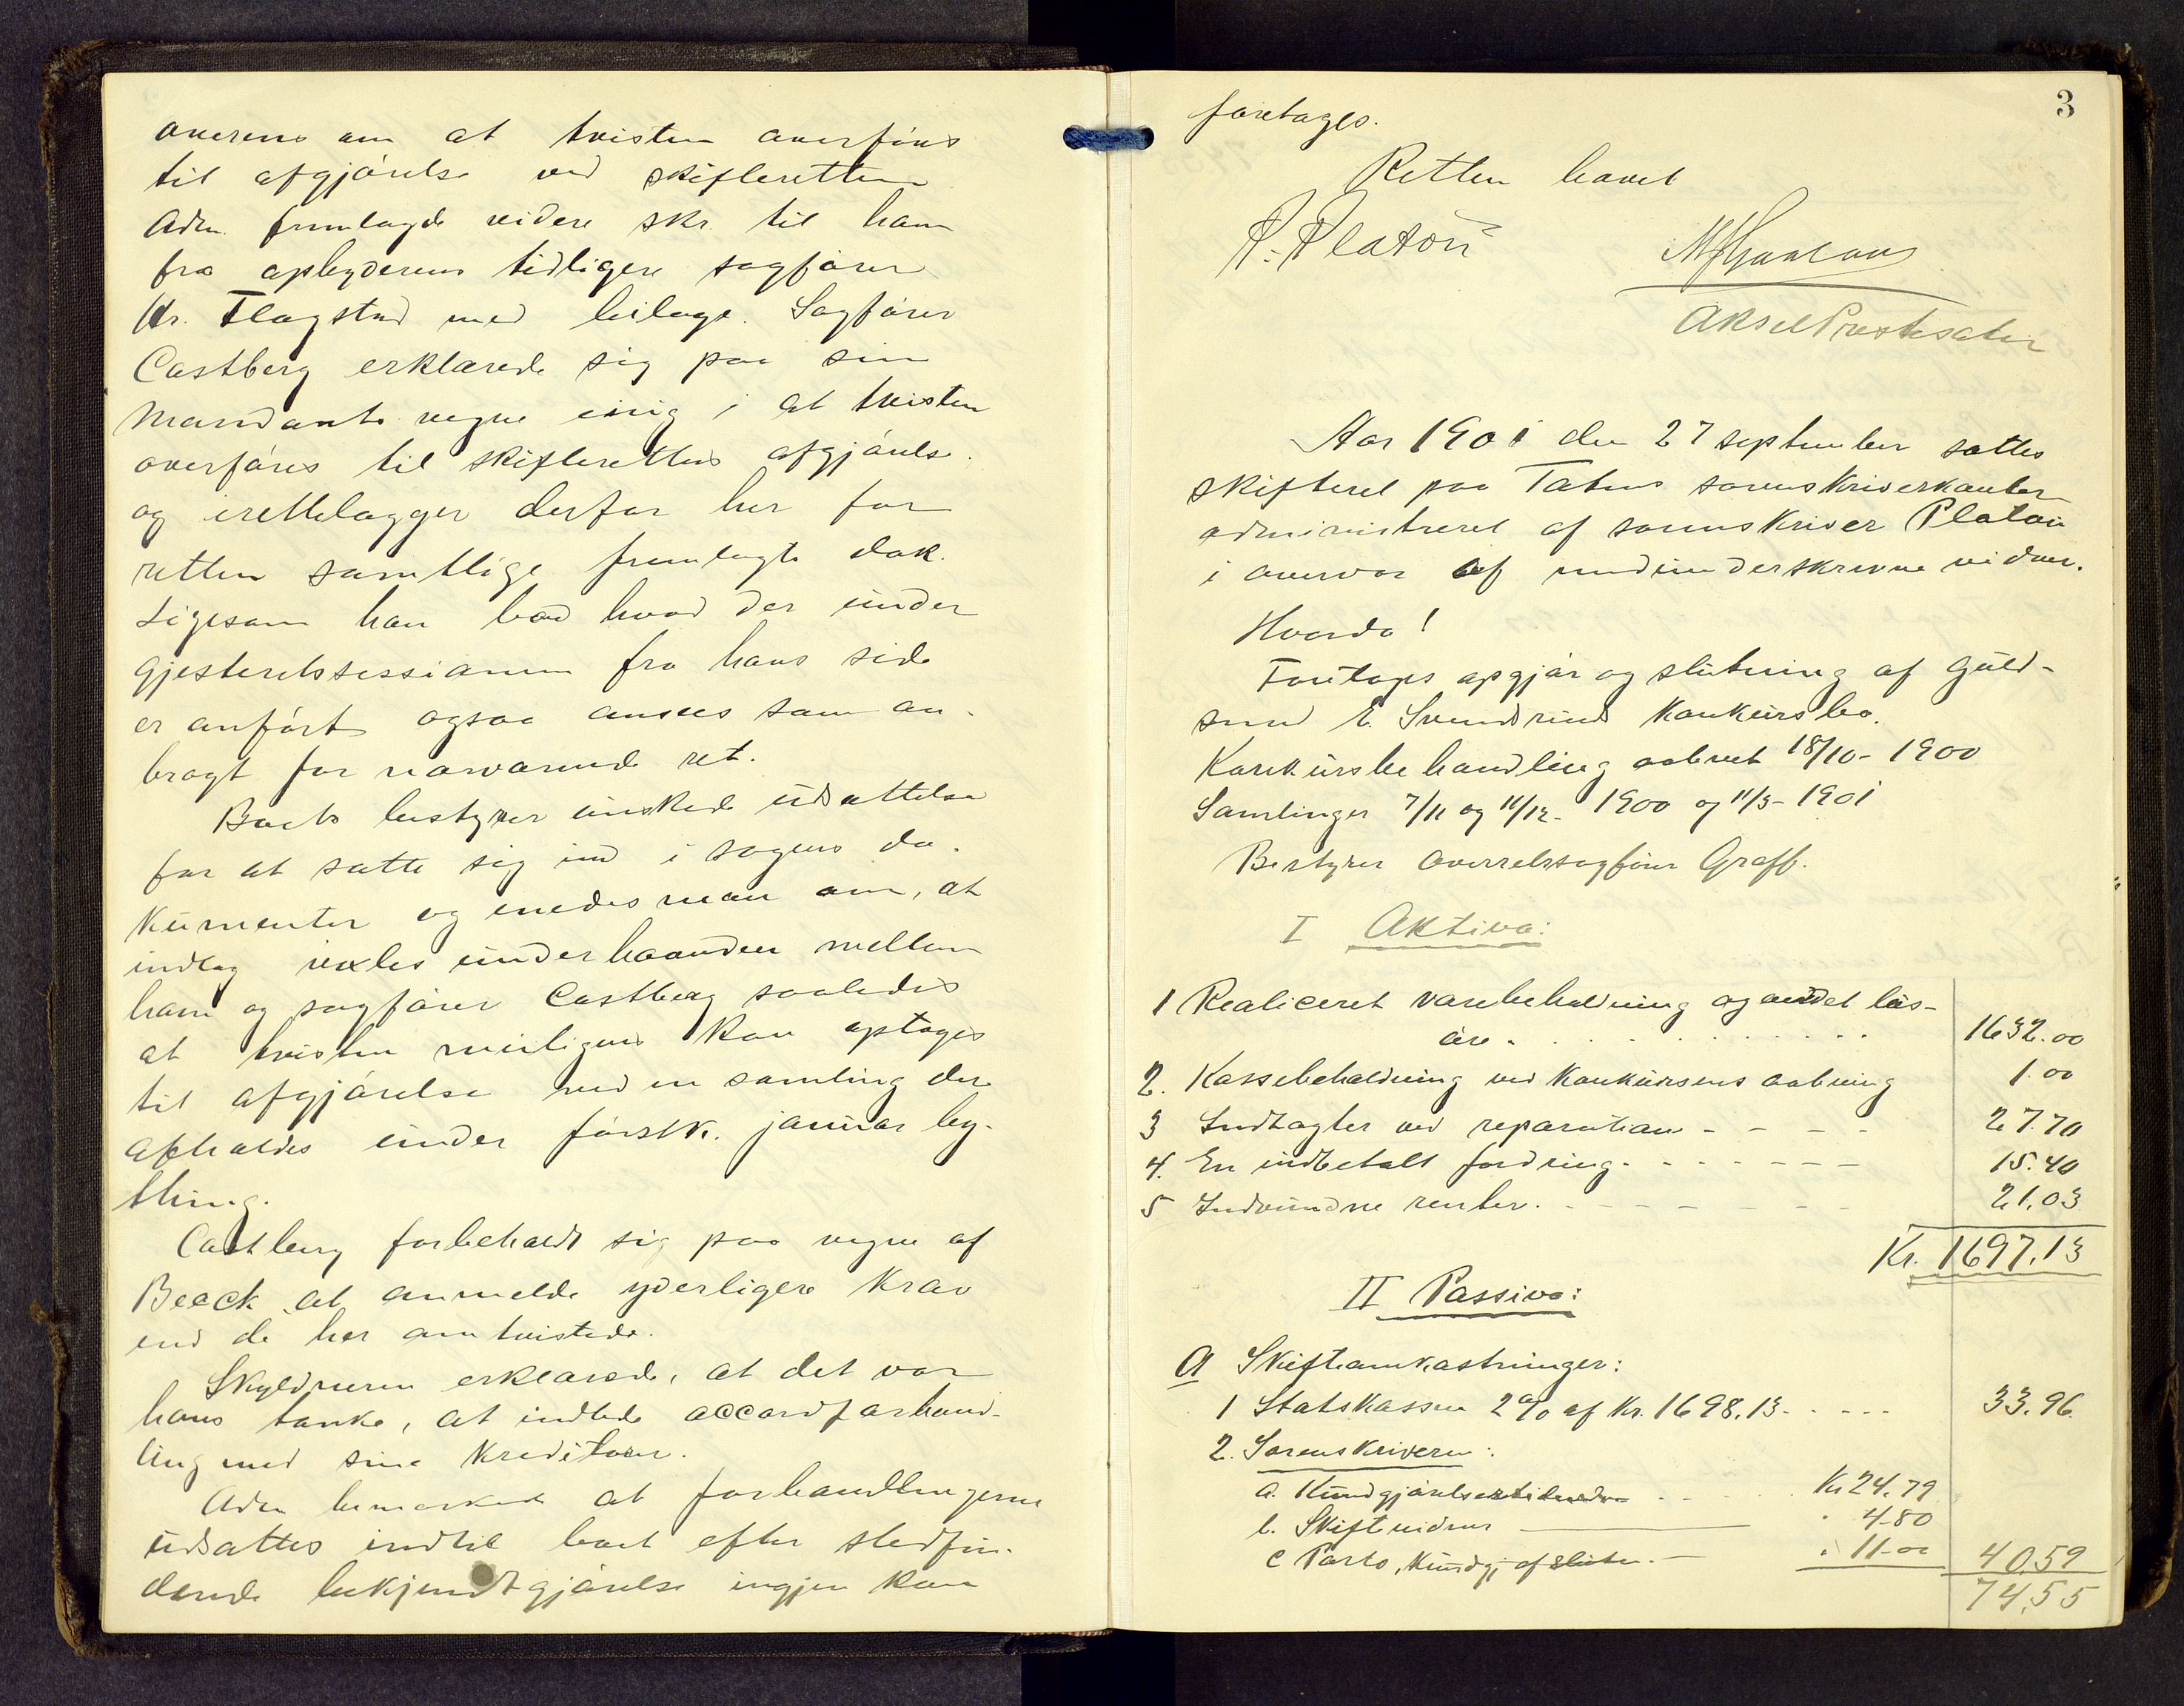 overens om at tvisten overføres
til afgjørelse ved skifteretten
Adm. fremlagde videre skr. til ham
fra opbyderens tidligere sagfører
Hr. Flagstad med bilage. Sagfører
Castberg erklærede sig paa sin
Mandants vegne enig i at tvisten
overføres til skifterettens afgjørelse.
og irettelægger derfor her for
retten samtlige fremlagte dok.
Ligesom han bad hvad der under
gjesteretssessionen fra hans side
er anført ogsaa ansees som an-
bragt for nærværende ret.
Boets bestyrer ønskede udsættelse
for at sætte sig ind i sagens do-
kumenter og enedes man om, at
indlæg vexles underhaanden mellem
ham og sagfører Castberg saaledes
at tvisten muligens kan optages
til afgjørelse ved en samling der
afholdes under førstk. januar by-
thing.
Castberg forbeholdt sig paa vegne af
Beeck at anmelde yderligere krav
end de her omtvistede.
Skyldneren erklærede, at det var
hans tanke, at indlede accordforhand-
ling med sine kreditorer.
Adm bemærkede at forhandlingerne
udsættes indtil boet efter stedfin-
dende bekjendtgjørelse ingjen kan
3
foretages.
Retten hævet
P. Platou
Aksel Prestesæter
Aar 1901 den 27 september sattes
skifteret paa Totens sorenskriverkontor
administreret af sorenskriver Platou
i overvær af medunderskrevne vidner.
Hvorda!
Foretoges opgjør og slutning af guld-
smed E. Svendsruds konkursbo.
Konkursbehandling aabnet 18/10- 1900
Samlinger 7/11 og 11/12- 1900 og 11/3- 1901
Bestyrer overretssagfører Graff.
I Aktiva:
1 Realiceret varebeholdning og andet løs-
øre . . . . . . . 1632.00
2. Kassebeholdning ved konkursens aabning 1.00
3 Indtægter ved reparation - - - - 27.70
4. En indbetalt fordring. - - - - - - 15.40
5 Indvundne renter. - - - - - - - 21.03
Kr. 1697.13
II Passiva:
A Skifteomkostninger:
1 Statskassen 2% af Kr. 1698.13. - - - - 33.96
2. Sorenskriveren:
a. Kundgjørelsestidende - - - - Kr 24.79
b. Skiftevidner " 4.80
c Porto, kundgj. af slutn. " 11.00 40.59
74.55